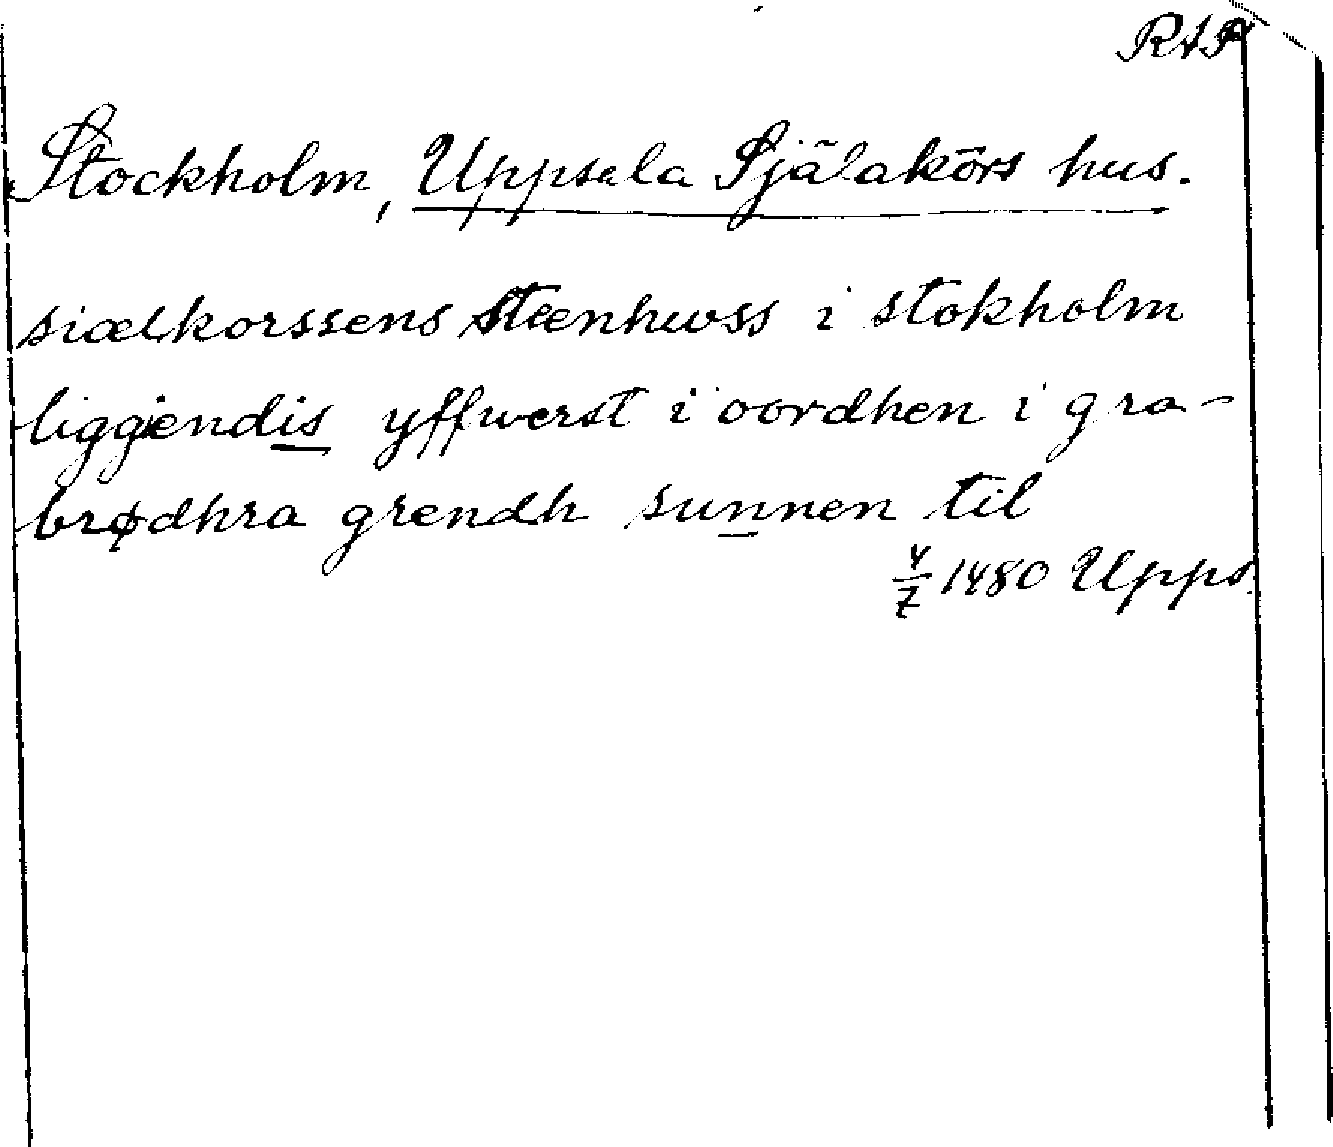 RAP
Stockholm, Uppsala Själakörs hus.
siælkorssens steenhwss i stokholm
liggiendis yffwerst i oordhen i gra-
brødhra grendh sunnen til
4/7 1480 Upps.